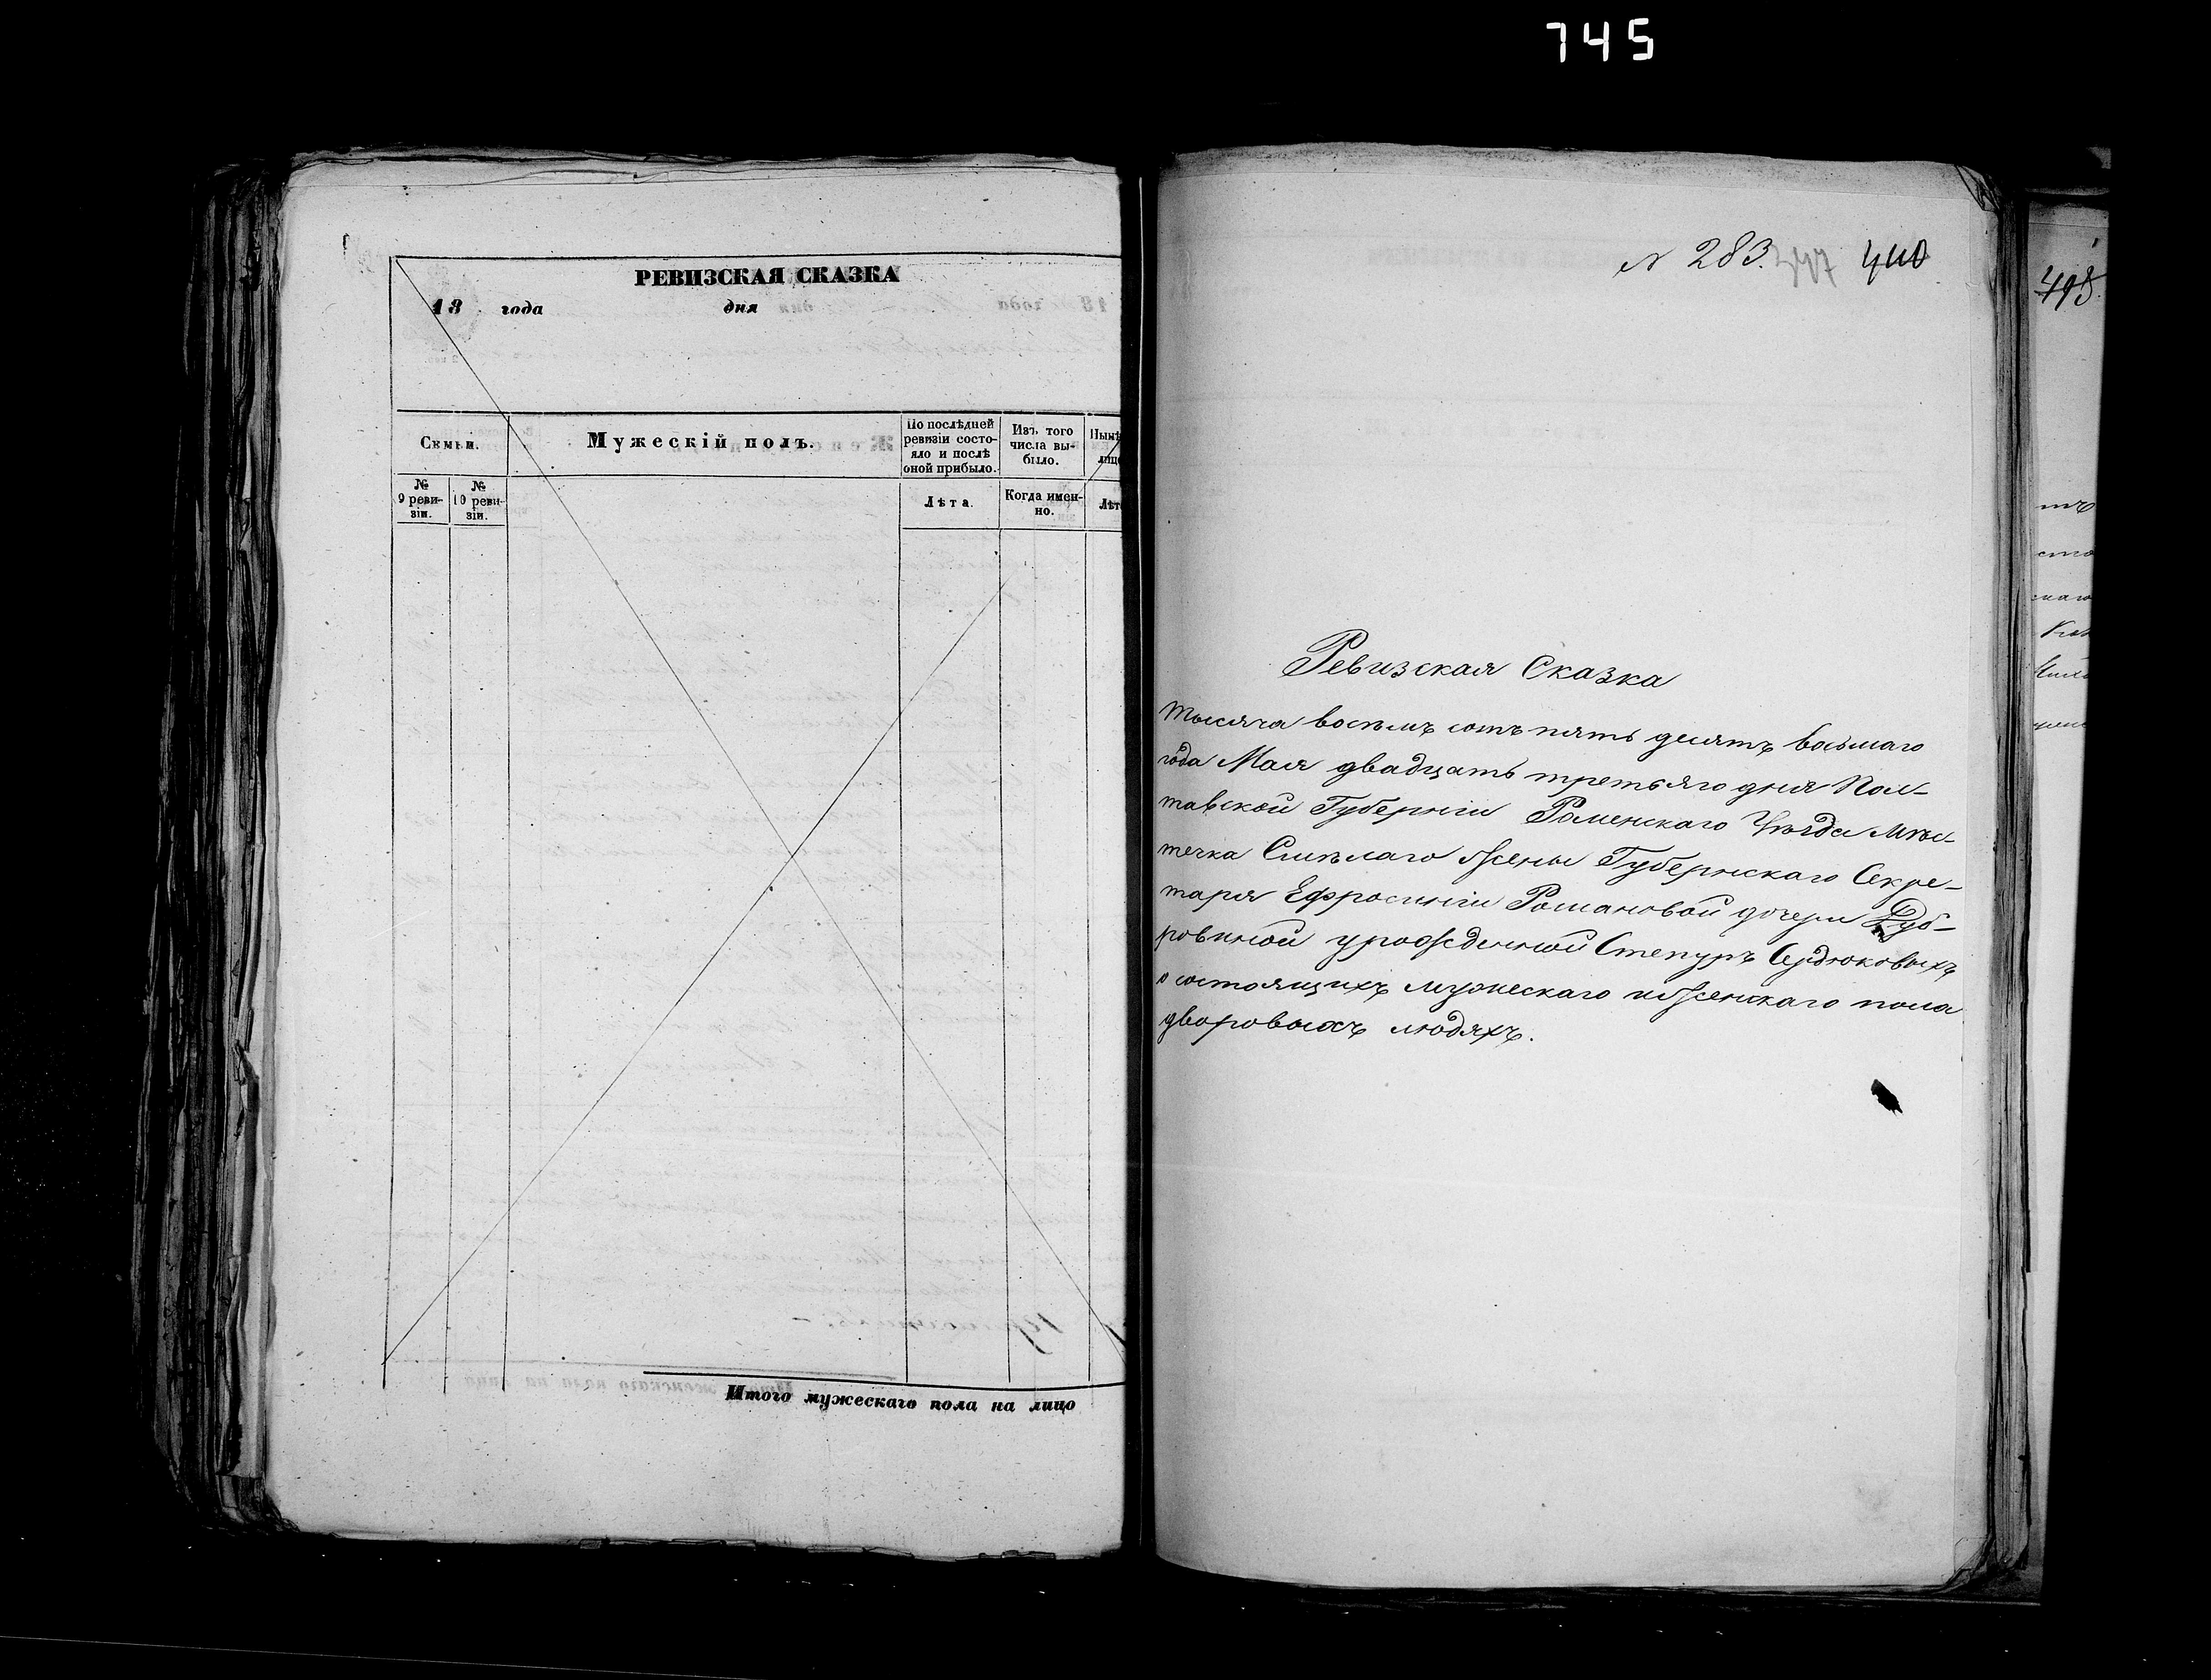 745
РЕВИЗСКАЯ СКАЗКА
18 года дня
Семьи.
Мужескій полъ.
По послѣдней
ревизіи состо-
яло и послѣ
оной прибыло.
Изъ того
числа вы-
было.
№
9 реви-
зіи.
№
10 реви-
зіи.
Лѣта.
Когда имен-
но.
Итого мужескаго пола на лицо
N 283. 440
Ревизская Сказка
Тысяча восемъ сотъ пять десятъ восьмаго
года Мая двадцать третьяго дня Пол-
тавской Губерніи Роменскаго Уѣзда Мѣс-
течка Смѣлаго Жены Губернскаго Секре-
таря Ефросиніи Романовой дочери Дуб-
ровиной урожденной Степуръ Сердюковыхъ
о состоящихъ мужескаго и женскаго пола
дворовыхъ людяхъ.